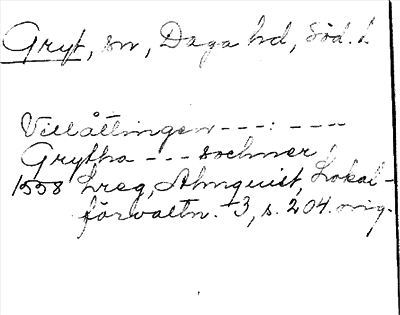 Gryt, sn, Daga hd, Söd. l.
Villåttingen - - - : - - - -
Grytha - - - sochner!
1558 Lreg, Almquist, Lokal-
förvaltn. 3, s. 204. orig.